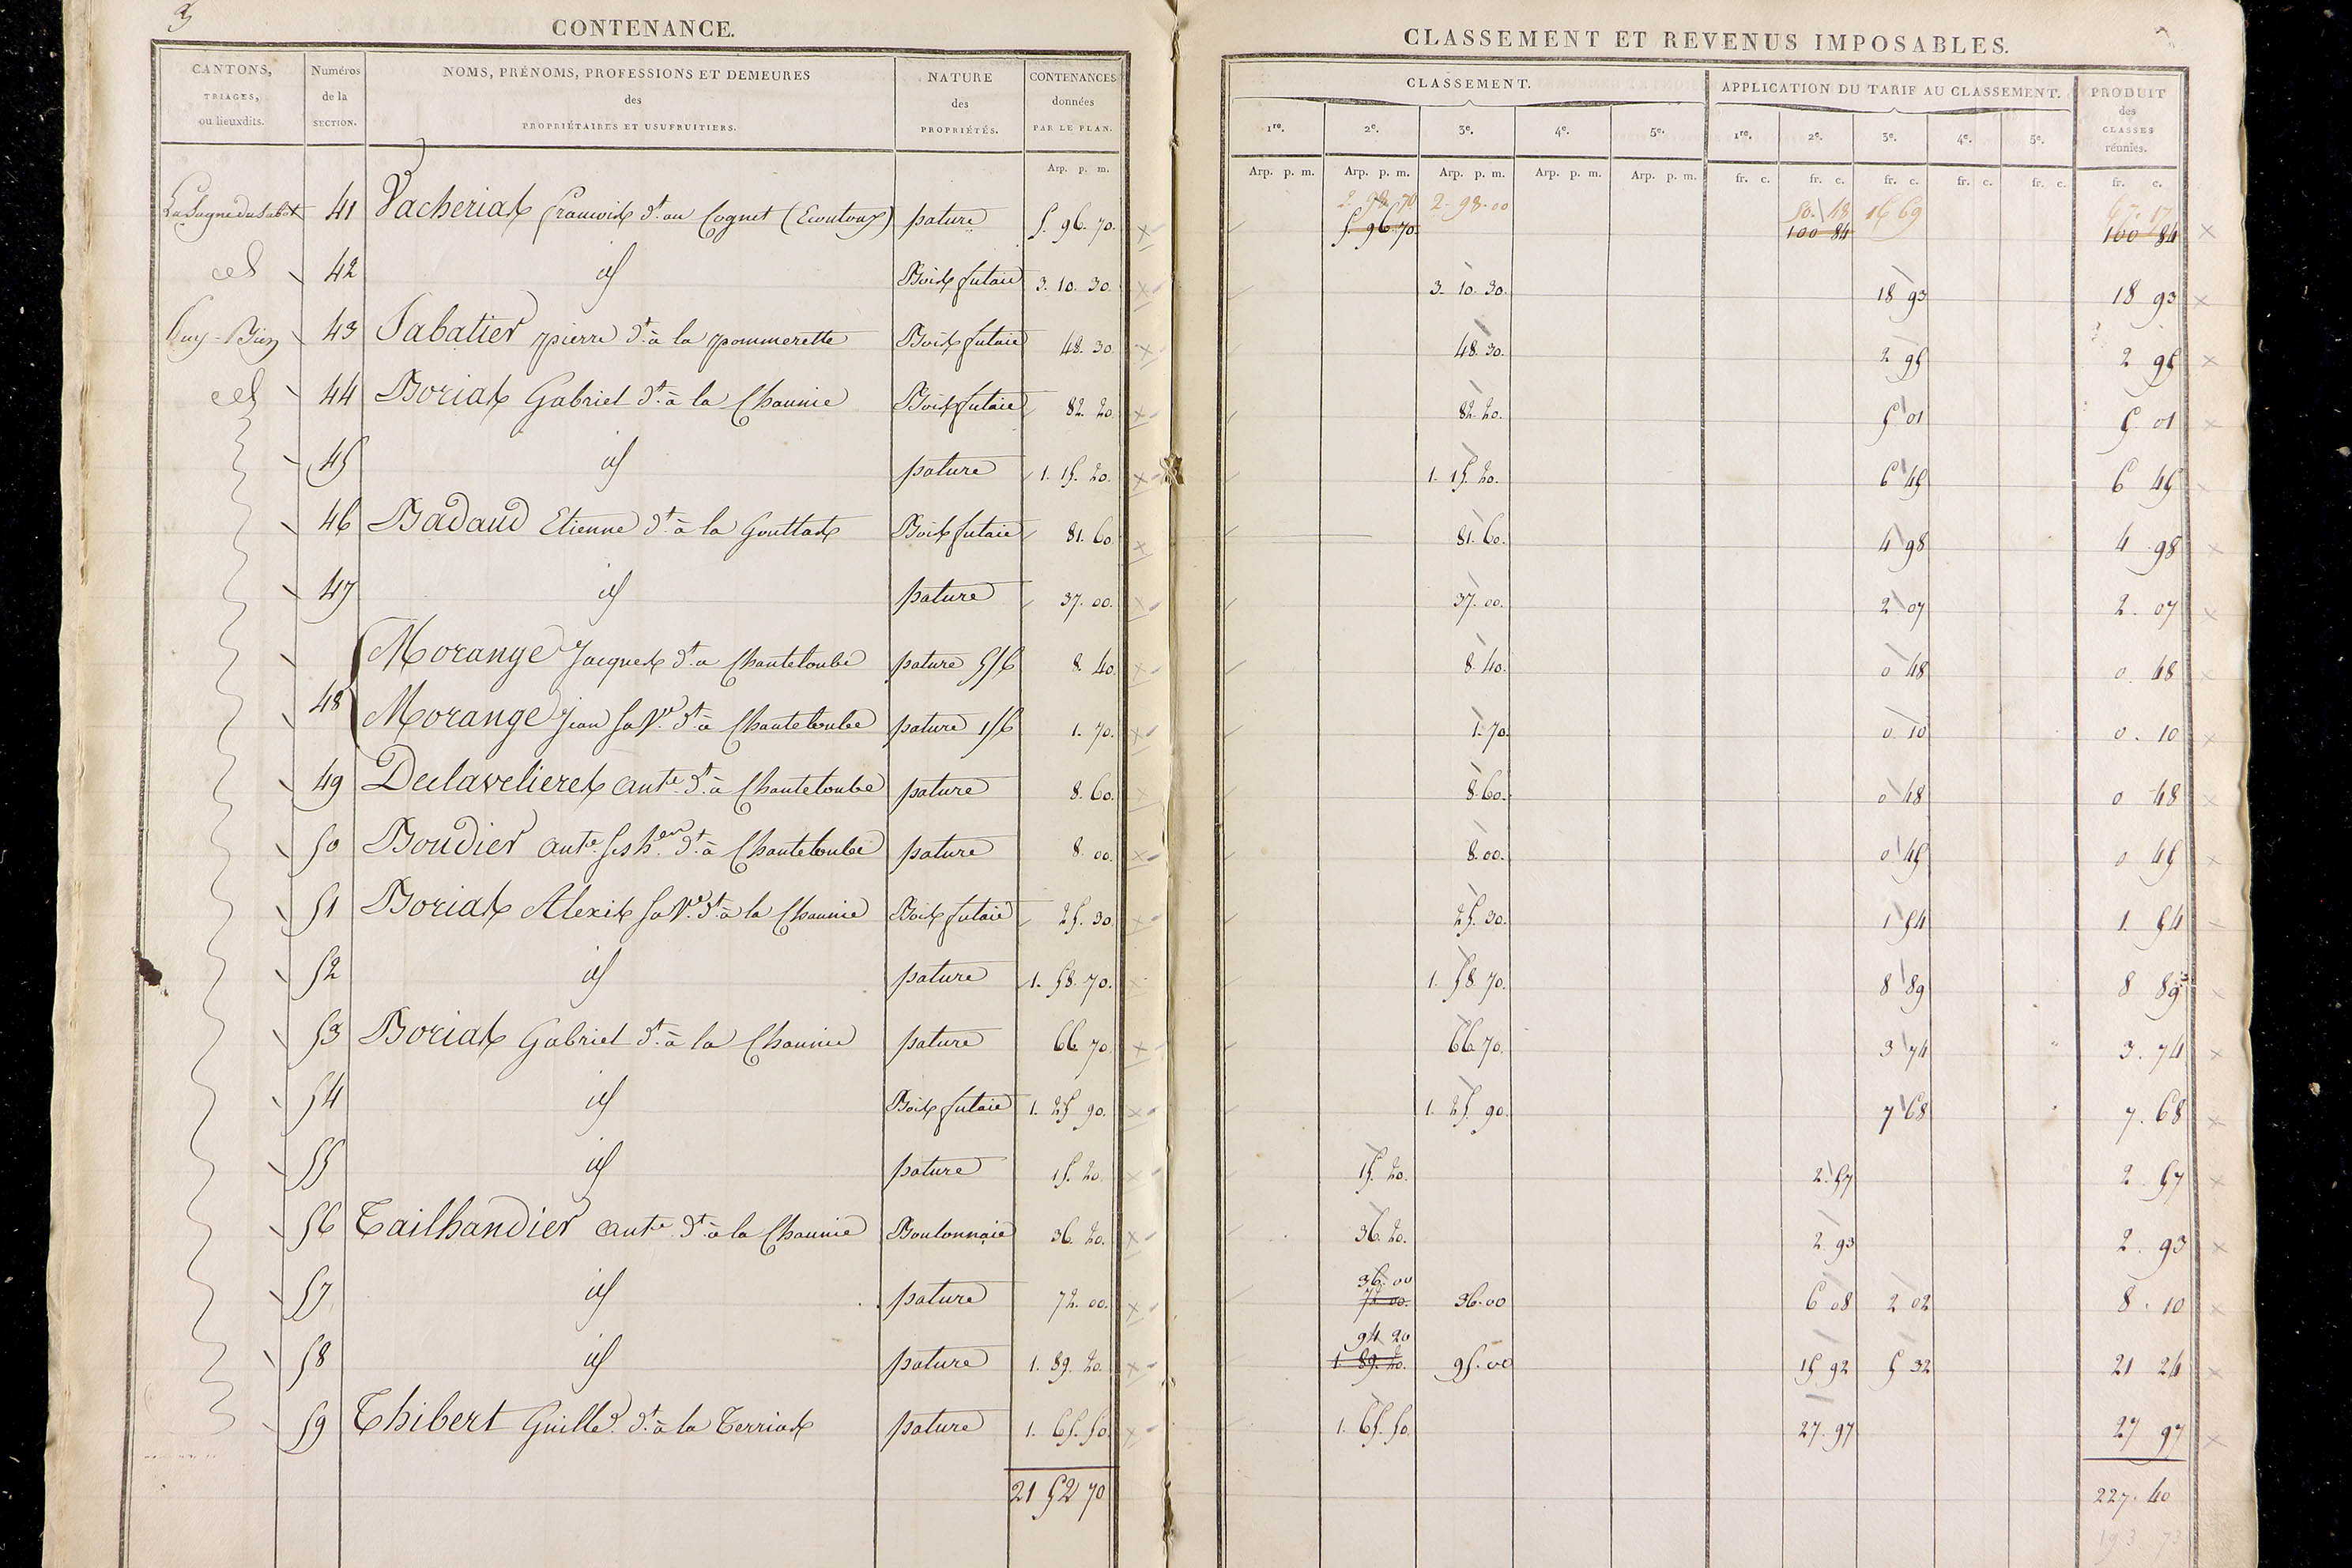 3
CONTENANCE.
CANTONS, TRIAGES, ou lieuxdits.
Numéros de la SECTION.
NOMS, PRÉNOMS, PROFESSIONS ET DEMEURES des PROPRIÉTAIRES ET USUFRUITIERS.
NATURE des PROPRIÉTÉS.
CONTENANCES données PAR LE PLAN.
Arp. p. m.
41 Vacheriat françois dt au Cognet pature 5. 96. 70.
42 id Bois futaie 3. 10. 30.
43 Sabatier pierre dt à la pommerette Bois futaie 48. 30
44 Boriat Gabriel dt à la Chaunie Bois futaie 82. 20
45 id pature 1. 15. 20.
46 Badaud Etienne dt à la Gouttas Bois futaie 81. 60
47 id pature 37. 00.
Morange Jacques dt a Chanteloube pature 5/6 8. 40
48
Morange jean sa Ve dt à Chanteloube pature 1/6 1. 70.
49 Declavelieres ante dt à Chanteloube pature 8. 60.
50 Boudier ante ses her dt à Chanteloube pature 8 00.
51 Boriat Alexis sa Ve dt à la Chaunie Bois futaie 25. 30
52 id pature 1. 58. 70.
53 Boriat Gabriel dt à la Chaunie pature 66 70
54 id Bois futaie 1. 25 90.
55 id pature 15. 20
56 Tailhandier ante dt à la Chaunie Boulonnaie 36. 20.
57 id pature 72. 00.
58 id pature 1. 89. 20.
59 Thibert Guille dt à la Terrias pature 1. 65. 50
21 52 70
CLASSEMENT ET REVENUS IMPOSABLES.
CLASSEMENT.
APPLICATION DU TARIF AU CLASSEMENT.
PRODUIT des CLASSES réunies.
1re. 2e. 3e. 4e. 5e. 1re. 2e. 3e. 4e. 5e.
Arp. p. m. Arp. p. m. Arp. p. m. Arp. p. m. Arp. p. m. fr. c. fr. c. fr. c. fr. c. fr. c. fr. c.
2. 98. 70 2. 98. 00 50. 48 16 69 67. 17
5. 96. 70. 100 84 100 84
3. 10. 30. 18 93 18 93
48. 30. 2 95 2 95
82. 20. 5 01 5 01
1. 15. 20. 6 45 6 45
81. 60. 4 98 4 98
37. 00. 2 07 2. 07
8. 40. 0 48 0. 48
1. 70. 0. 10 0. 10
8. 60. 0 48 0 48
8. 00. 0 45 0 45
25. 30. 1 54 1. 54
1. 58 70. 8 89 8 89
66 70. 3 74 3. 74
1. 25. 90. 7 68 7. 68
15. 20. 2. 57 2. 57
36. 20. 2. 93 2. 93
36. 00
72. 00. 36. 00 6 08 2 02 8. 10
94 20
1. 89. 20. 95. 00 15 92 5 32 21 24
1. 65. 50. 27. 97 27 97
227. 40
193 73